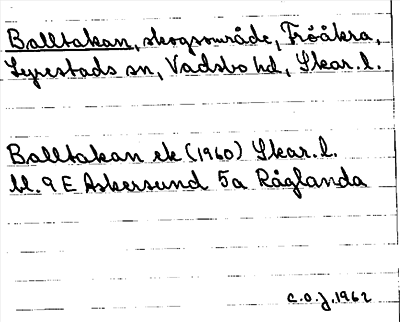 Balltakan, skogsområde, Fröåkra,
Lyrestads sn, Vadsbo hd, Skar. l.
Balltakan ek (1960) Skar. l.
bl. 9 E Askersund 5a Råglanda
C.O.J. 1962